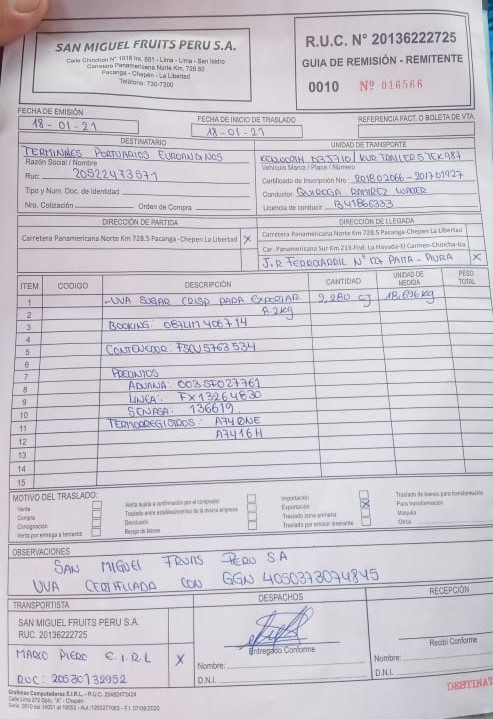 SAN MIGUEL FRUITS PERU S.A.
Calle Chinchon N° 1018 Int. 501 - Lima - Lima - San Isidro
Carretera Panamericana Norte Km. 728.50
Pacanga - Chepén - La Libertad
Teléfono: 730-7300
R.U.C. N° 20136222725
GUIA DE REMISIÓN - REMITENTE
0010 Nº 016566
FECHA DE EMISIÓN
18-01-21
FECHA DE INICIO DE TRASLADO
18-01-21
REFERENCIA FACT. O BOLETA DE VTA.
DESTINATARIO
TERMINALES PORTUARIOS EUROANDINOS
Razón Social / Nombre
Ruc: 20522473571
Tipo y Num. Doc. de Identidad:
Nro. Cotización
Orden de Compra
UNIDAD DE TRANSPORTE
Vehículo Marca / Placa / Número
Certificado de Inscripción Nro.: 201802066-201701927
Conductor: QUIROGA RAMIREZ
Licencia de conducir B41866333
DIRECCIÓN DE PARTIDA
Carretera Panamericana Norte Km 728.5 Pacanga-Chepen La Libertad X
DIRECCIÓN DE LLEGADA
Carretera Panamericana Norte Km 728.5 Pacanga-Chepen La Libertad
Car. Panamericana Sur Km 213-Fnd. La Hoyada-El Carmen-Chincha-Ica
J.R FERROCARRIL N° 127 PAITA - PIURA X
ITEM CODIGO DESCRIPCIÓN CANTIDAD UNIDAD DE MEDIDA PESO TOTAL
1 -UVA SUGAR CRISP PARA EXPORTAR 2,280 CJ 18,696 kg
2 8.2kg
3 BOOKING: 087LIM406714
4
5 CONTENEDOR: FSCU5763534
6
7 PRECINTOS
8 ADUANA: 003SF027761
9 LINEA: FX13264830
10 SENASA: 136619
11 TERMOREGISTROS: A74ØNE
12 A7416H
13
14
15
MOTIVO DEL TRASLADO:
Venta
Compra
Consignación
Venta por entrega a terceros
Venta sujeta a confirmación por el comprador
Traslado entre establecimientos de la misma empresa
Devolución
Recojo de bienes
Importación
Exportación X
Traslado zona primaria
Traslado por emisor itinerante
Traslado de bienes para transformación
Para transformación
Maquila
Otros
OBSERVACIONES
SAN MIGUEL FRUITS PERU SA
UVA CERTIFICADA CON GGN 4050373074845
TRANSPORTISTA
SAN MIGUEL FRUITS PERU S.A.
RUC. 20136222725
MARCO PIERO E.I.R.L X
RUC: 20530732952
DESPACHOS
Entregado Conforme
Nombre:
D.N.I.
RECEPCIÓN
Recibí Conforme
Nombre:
D.N.I.
DESTINAT